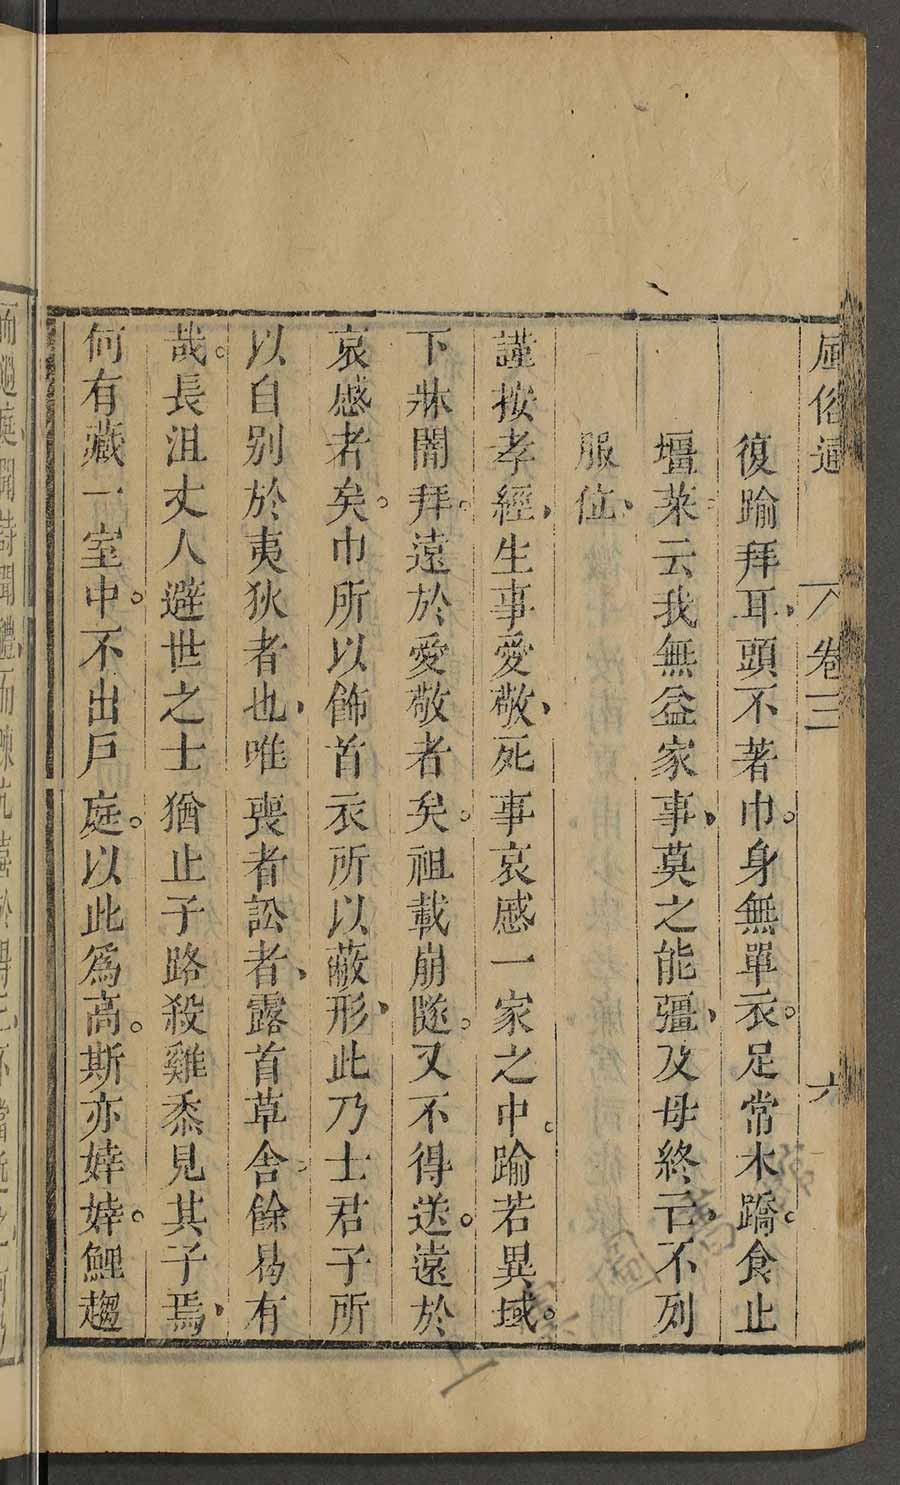 風俗通 卷三 六
復踰拜耳、頭不著巾。身無單衣。足常木蹻。食止
壃菜云我無益家事、莫之能彊、及母終亡、不列
服位、
謹按孝經、生事愛敬、死事哀慼一家之中。踰若異域。
下牀闇拜。遠於愛敬者矣。祖載崩隧。又不得送。遠於
哀慼者矣。巾所以飾首衣所以蔽形、此乃士君子所
以自别於夷狄者也、唯喪者訟者、露首草舍。餘曷有
哉。長沮丈人避世之士猶止子路殺雞黍見其子焉、
何有藏一室中。不出戶庭。以此爲高。斯亦婞婞。鯉趨
而過庭聞詩聞禮、而陳亢喜於得